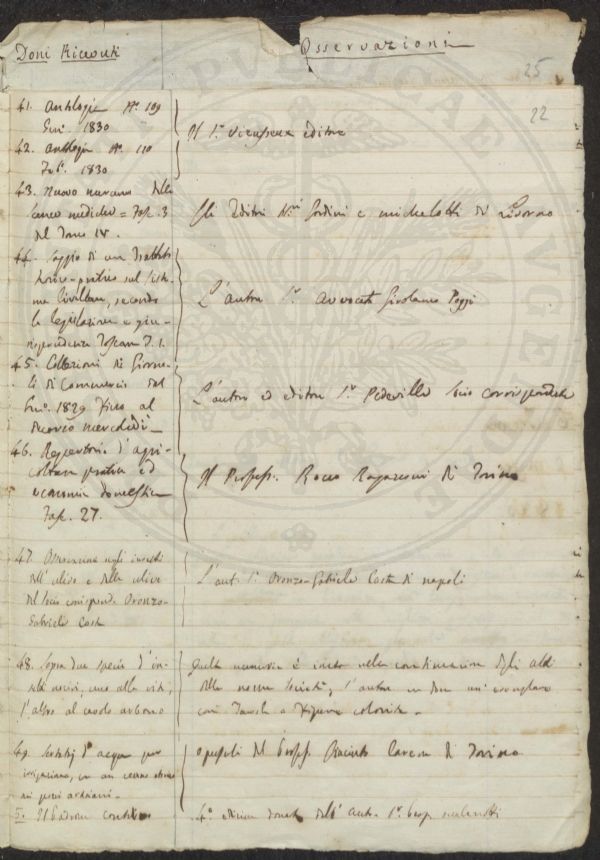 Doni Ricevuti
Osservazioni
25
22
41. Antologia N.º 109
Gen.º 1830
42. Antologia N.º 110
Feb.º 1830
Il S.r Vieusseux editore
43. Nuovo mercurio delle
scienze mediche = Fasc. 3
del Tomo IV.
Gli Editori Sardini e Micheletti di Livorno
44. Saggio di un Trattato
teorico-pratico sul siste-
ma livellare, secondo
la legislazione e giu-
risprudenza Toscana T. 1.
L'autore S.r Avvocato Girolamo Poggi
45. Collezioni di Giorna-
li di Commercio dal
Gen.º 1829 fino al
decorso mercoledì
L'autore ed editore S.r Pedevilla socio corrispondente
46. Repertorio d'agri-
coltura pratica ed
economia domestica
Fasc. 27.
Il Profess. Rocco Ragazzoni di Torino
47. Osservazioni sugli insetti
dell'ulivo e delle ulive
del socio corrisponde Oronzo-
Gabriele Costa
L'aut. S.r Oronzo-Gabriele Costa di Napoli
48. Sopra due specie d'in-
setti nocivi, uno alla vite,
l'altro al
Questa memoria è inserita nella continuazione degli atti
della nostra Società, l'autore
con Tavole a Figure colorite.
49. d'acqua per
irrigazione, in un
ai pozzi ordinari.
opuscoli del Profess. Giacinto Carena di Torino
5. Il Padrone contadino
4.ª edizione donata dall'Aut. S.r Prof. Malenotti